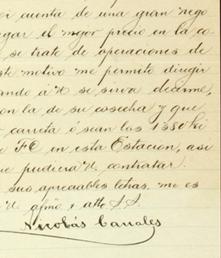 cuenta de una gran nego
gar el mejor precio en la co
se trate de operaciones de
ste motivo me permito dirigir
ando a V. se sirva decirme,
on la de su cosecha y que
carreta ó sean las 1350 ki
FC en esta Estacion, asi
ue pudiera V. contratar.
sus apreciables letras, me es
V. afmo. e atto. S.S.
Nicolás Canales